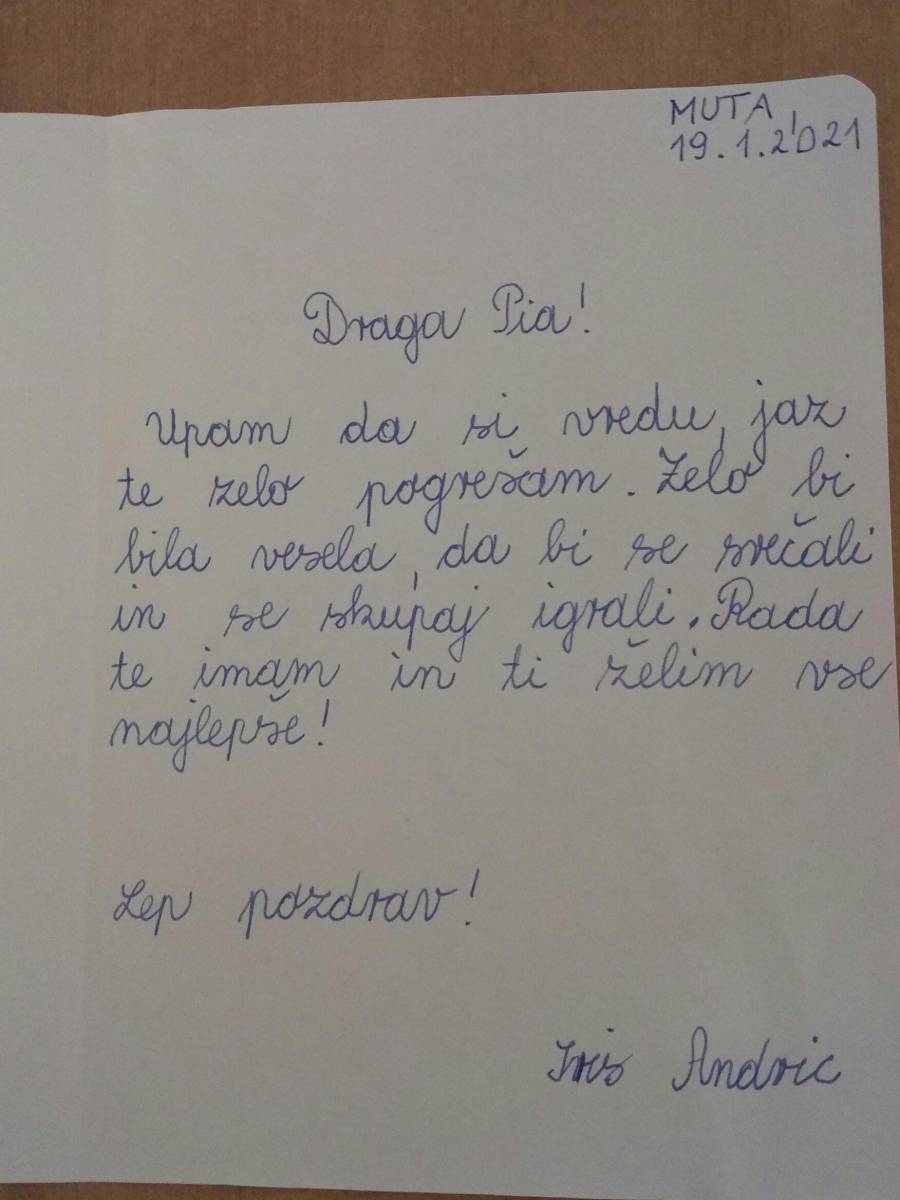 MUTA,
19.1.2021
Draga Pia!
Upam da si vredu, jaz
te zelo pogrešam. Zelo bi
bila vesela, da bi se srečali
in se skupaj igrali. Rada
te imam in ti želim vse
najlepše!
Lep pozdrav!
Iris Andric